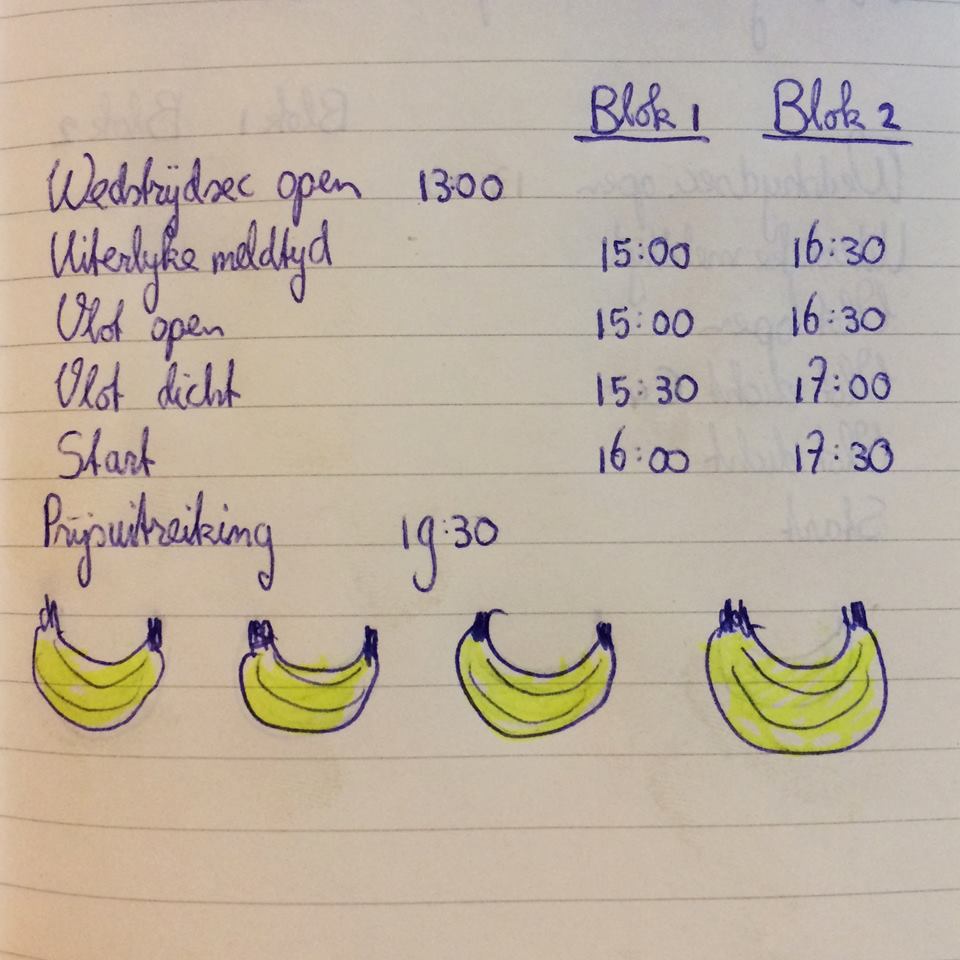 Blok 1 Blok 2
Wedstrijdsec open 13:00
Uiterlyke meldtyd 15:00 16:30
Vlot open 15:00 16:30
Vlot dicht 15:30 17:00
Start 16:00 17:30
Prijsuitreiking 19:30